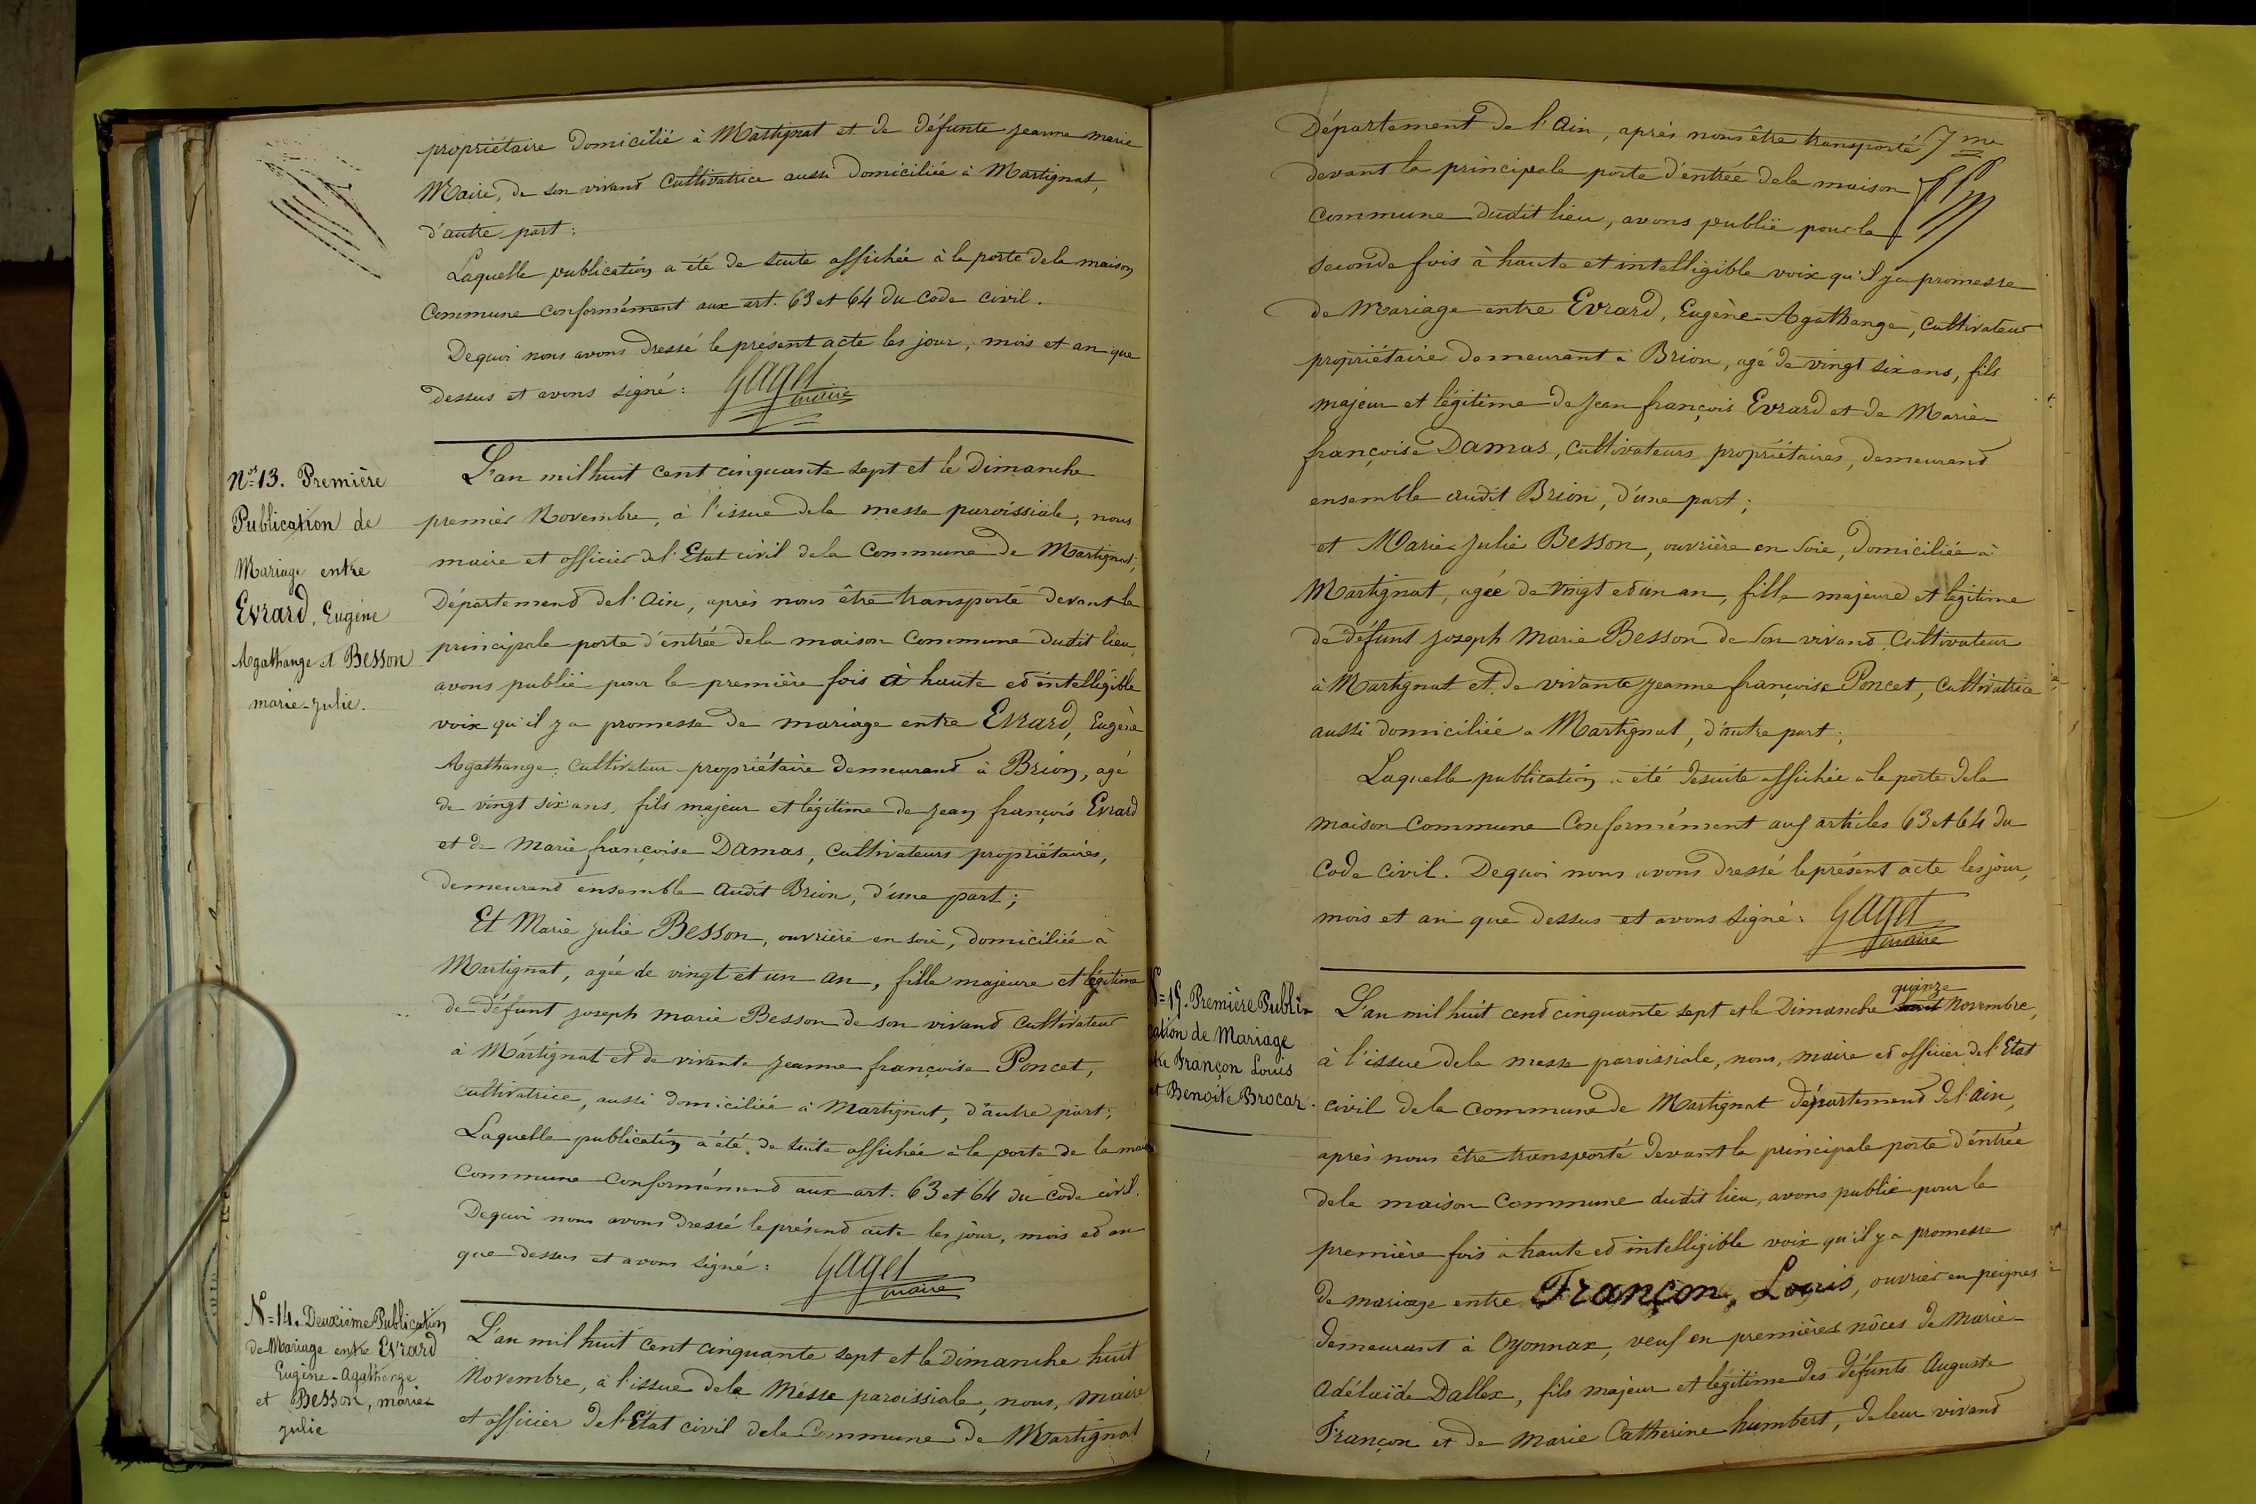 propriétaire domicilié à Martignat et de défunte jeanne marie
Maire, de son vivant Cultivatrice aussi domiciliée à Martignat,
d'autre part :
Laquelle publication a été de suite affichée à la porte dela maison
Commune conformément aux art. 63 et 64 du Code civil.
Dequoi nous avons dressé le présent acte les jour, mois et an que
dessus et avons signé : Gaget
maire
Nos 13. Première
Publication de
Mariage entre
Evrard, Eugène
Agathange et Besson
marie-julie.
L'an mil huit cent cinquante sept et le Dimanche
premier Novembre, à l'issue dela messe paroissiale, nous
maire et officier del'Etat civil dela Commune de Martignat,
Département del'Ain, après nous être transporté devant la
principale porte d'entrée dela maison Commune dudit lieu
avons publié pour la première fois à haute et intelligible
voix qu'il y a promesse de mariage entre Evrard, Eugène
Agathange, cultivateur propriétaire demeurant à Brion, agé
de vingt six ans, fils majeur et légitime de jean françois Evrard
et de Marie françoise Damas, cultivateurs propriétaires,
demeurant ensemble audit Brion, d'une part ;
Et Marie julie Besson, ouvrière en soie, domiciliée à
Martignat, agée de vingt et un an, fille majeure et légitime
de défunt joseph marie Besson de son vivant cultivateur
à Martignat et de vivante jeanne françoise Poncet,
cultivatrice, aussi domiciliée à Martignat, d'autre part ;
Laquelle publication a été de suite affichée à la porte de la maison
Commune conformément aux art. 63 et 64 du Code civil.
Dequoi nous avons dressé le présent acte les jour, mois et an
que dessus et avons signé : Gaget
maire
N= 14. Deuxième Publication
de Mariage entre Evrard
Eugène-Agathange
et Besson, marie
julie
L'an mil huit cent cinquante sept et le Dimanche huit
Novembre, à l'issue dela Messe paroissiale, nous, maire
et officier del'Etat civil dela Commune de Martignat
Département de l'Ain, après nous être transporté 7me
devant la principale porte d'entrée dela maison
Commune dudit lieu, avons publié pour la
seconde fois à haute et intelligible voix qu'il y a promesse
de mariage entre Evrard, Eugène-Agathange, cultivateur
propriétaire demeurant à Brion, agé de vingt six ans, fils
majeur et légitime de jean françois Evrard et de Marie
françoise Damas, cultivateurs propriétaires, demeurant
ensemble audit Brion, d'une part ;
et Marie julie Besson, ouvrière en soie, domiciliée à
Martignat, agée de vingt et un an, fille majeure et légitime
de défunt joseph Marie Besson de son vivant cultivateur
à Martignat et de vivante jeanne françoise Poncet, cultivatrice
aussi domiciliée à Martignat, d'autre part ;
Laquelle publication a été desuite affichée à la porte dela
maison commune conformément aux articles 63 et 64 du
Code civil. Dequoi nous avons dressé le présent acte les jour,
mois et an que dessus et avons signé : Gaget
maire
N= 15. Première Publi-
cation de Mariage
tre Françon Louis
et Benoite Brocar.
quinze
L'an mil huit cent cinquante sept et le Dimanche huit Novembre,
à l'issue dela messe paroissiale, nous, maire et officier del'Etat
civil dela commune de Martignat département del'Ain,
après nous être transporté devant la principale porte d'entrée
dela maison Commune dudit lieu, avons publié pour la
première fois à haute et intelligible voix qu'il y a promesse
de mariage entre Françon, Louis, ouvrier en peignes
demeurant à Oyonnax, veuf en premières nôces de Marie
Adélaïde Dallex, fils majeur et légitime des défunts Auguste
Françon et de Marie Catherine humbert, deleur vivant